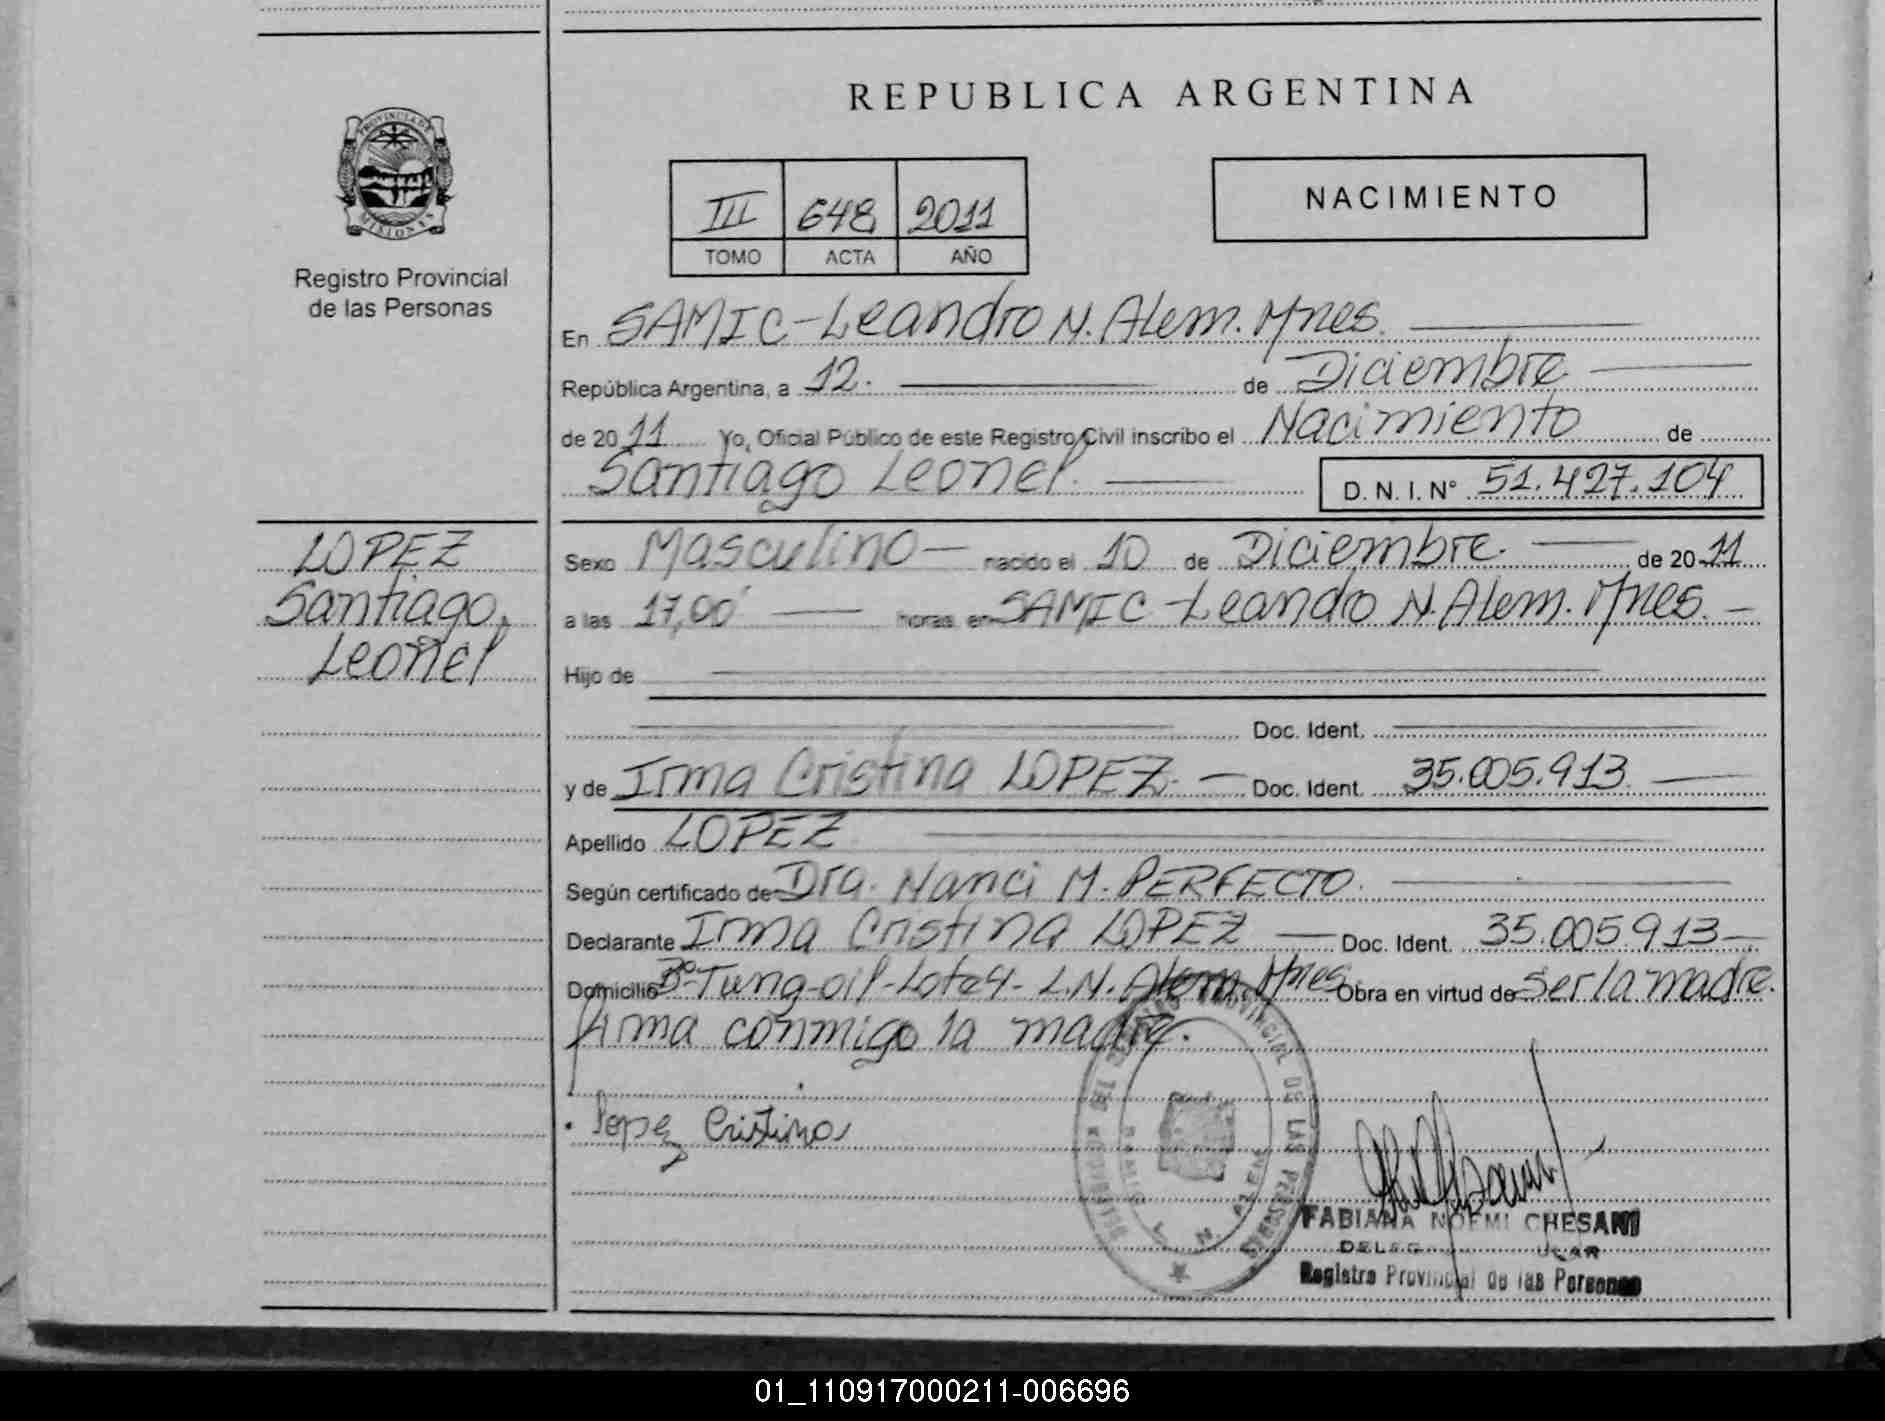 REPUBLICA ARGENTINA
PROVINCIA DE
MISIONES
Registro Provincial
de las Personas
III 648 2011
TOMO ACTA AÑO
NACIMIENTO
En SAMIC-Leandro N. Alem. Mnes.
República Argentina, a 12. de Diciembre
de 2011 Yo, Oficial Público de este Registro Civil inscribo el Nacimiento de
Santiago Leonel. D. N. I. N° 51.427.104
LOPEZ
Santiago,
Leonel
Sexo Masculino nacido el 10 de Diciembre. de 2011
a las 17,00 horas en SAMIC-Leandro N. Alem. Mnes.
Hijo de
Doc. Ident.
y de Irma Cristina LOPEZ. Doc. Ident. 35.005.913.
Apellido LOPEZ
Según certificado de Dra. Nanci M. PERFECTO.
Declarante Irma Cristina LOPEZ Doc. Ident. 35.005.913
Domicilio Bº-Tung-oil-Lote4-L.N. Alem. Mnes. Obra en virtud de ser la madre.
firma conmigo la madre.
Lopez Cristina
PROVINCIAL DE LAS PERSONAS
L. N. ALEM
FABIANA NOEMI CHESANI
Registro Provincial de las Personas
01_110917000211-006696